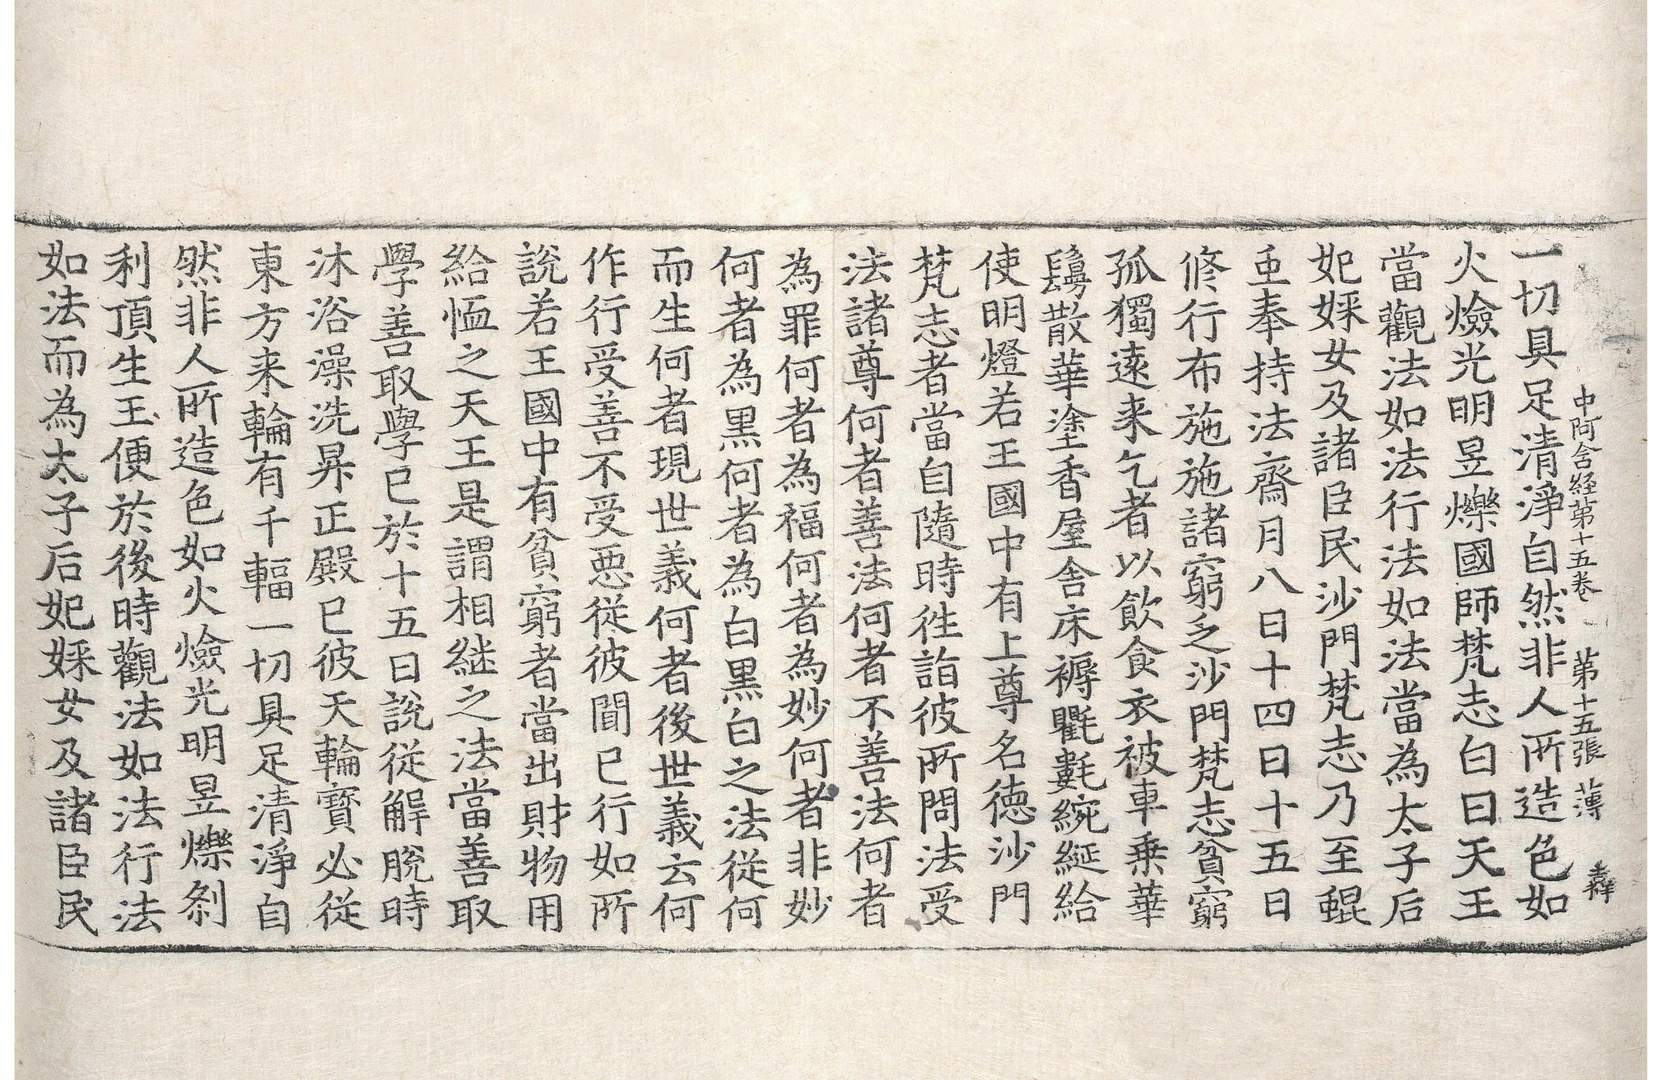 中阿含経第十五卷 第十五張 薄
一切具足清淨自然非人所造色如
火燄光明昱爍國師梵志白曰天王
當觀法如法行法如法當為太子后
妃婇女及諸臣民沙門梵志乃至蜫
䖝奉持法齋月八日十四日十五日
修行布施施諸窮乏沙門梵志貧窮
孤獨遠来乞者以飲食衣被車乗華
鬘散華塗香屋舍床褥氍氀綩綖給
使明燈若王國中有上尊名德沙門
梵志者當自隨時徃詣彼所問法受
法諸尊何者善法何者不善法何者
為罪何者為福何者為妙何者非妙
何者為黒何者為白黒白之法從何
而生何者現世義何者後世義云何
作行受善不受悪從彼聞已行如所
說若王國中有貧窮者當出財物用
給恤之天王是謂相継之法當善取
學善取學已於十五日說從解脫時
沐浴澡洗昇正殿已彼天輪寳必從
東方来輪有千輻一切具足清淨自
然非人所造色如火燄光明昱爍剎
利頂生王便於後時觀法如法行法
如法而為太子后妃婇女及諸臣民